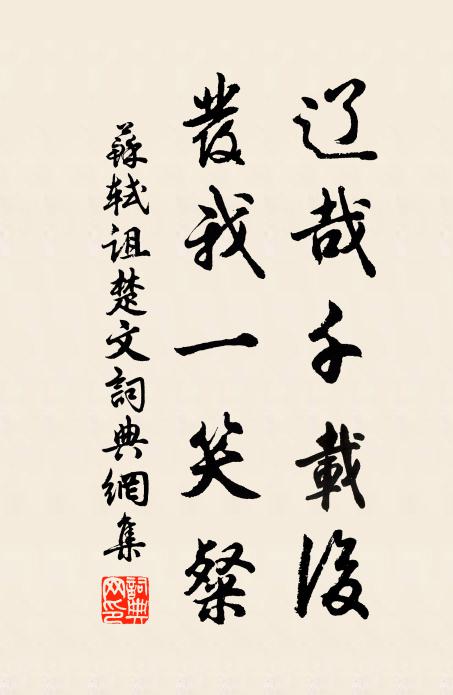 辽哉千載後
發我一笑粲
蘇軾詛楚文詞典網集
詞典網印